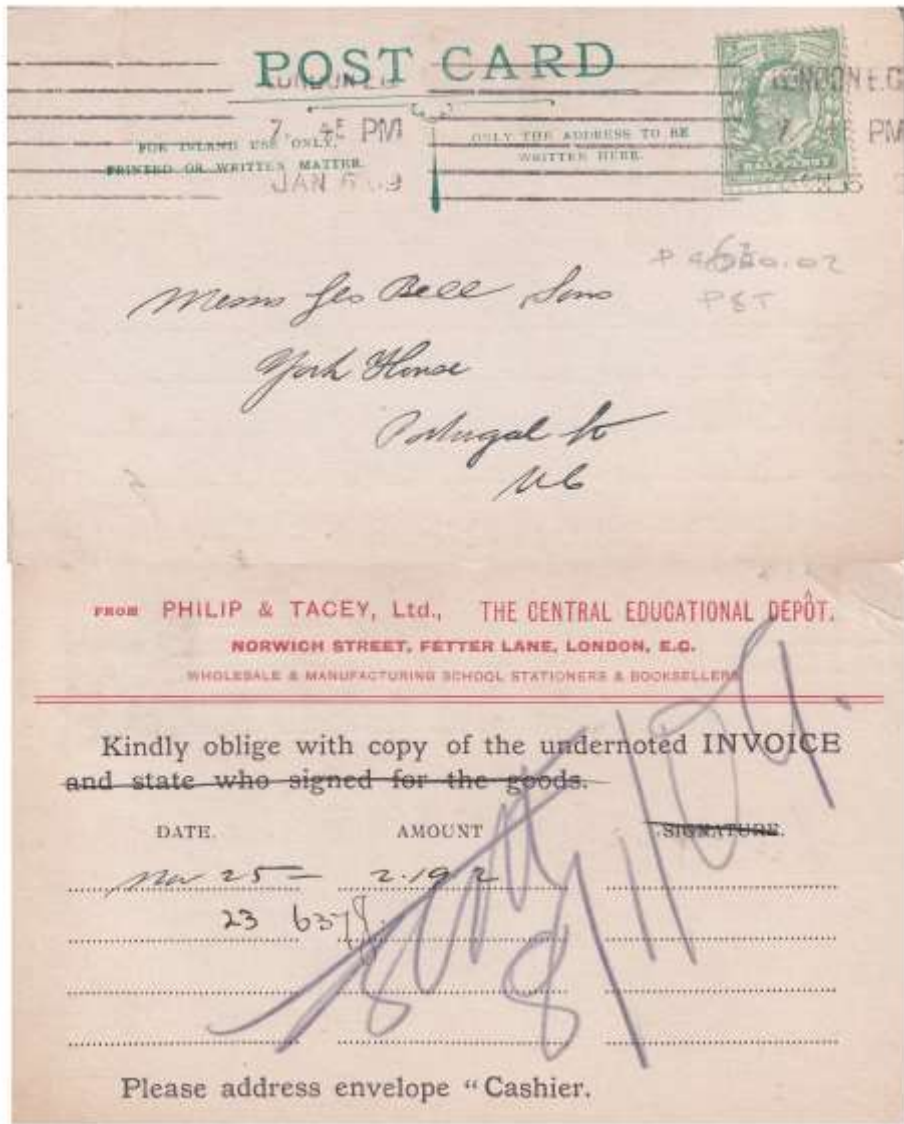 POST CARD
LONDON E.C
7. 45 PM
JAN 6 09
FOR INLAND USE ONLY.
PRINTED OR WRITTEN MATTER.
ONLY THE ADDRESS TO BE
WRITTEN HERE.
LONDON E.C
7 45 PM
HALFPENNY
Messrs Geo Bell Sons
York House
Portugal St
WC
P & T
FROM PHILIP & TACEY, Ltd., THE CENTRAL EDUCATIONAL DEPÔT.
NORWICH STREET, FETTER LANE, LONDON, E.C.
WHOLESALE & MANUFACTURING SCHOOL STATIONERS & BOOKSELLERS
Kindly oblige with copy of the undernoted INVOICE
and state who signed for the goods.
DATE. AMOUNT SIGNATURE.
Nov 25 — 2.19.2
23 637
8/1/09.
Please address envelope "Cashier.